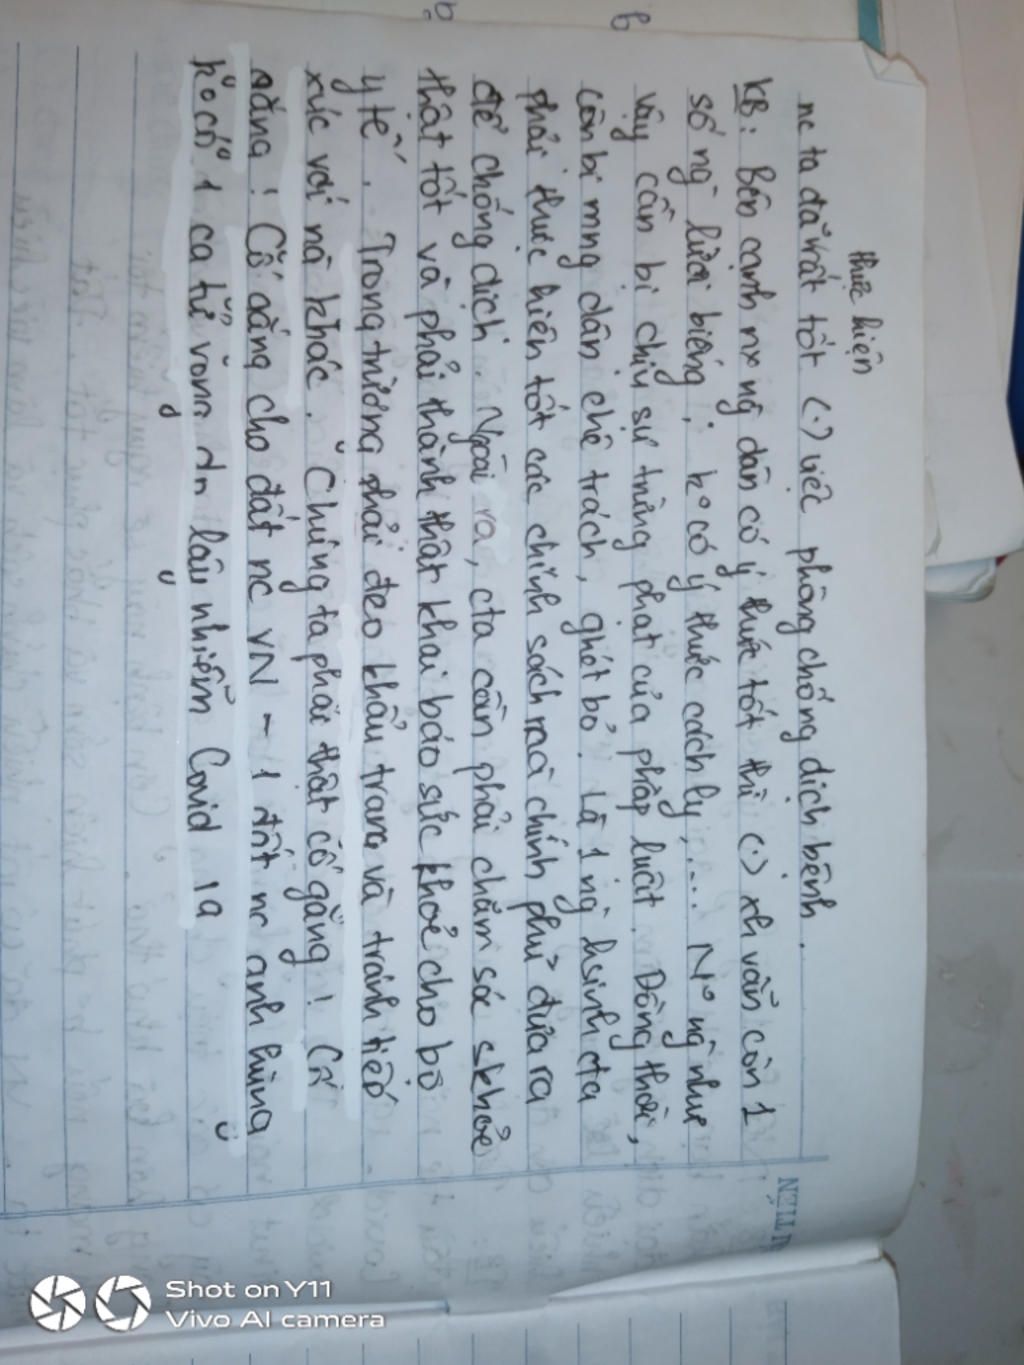 thực hiện
nc ta đã rất tốt (.) việc phòng chống dịch bệnh.
KB: Bên cạnh nx ng dân có ý thức tốt thì (.) xh vẫn còn 1
số ng lười biếng, ko có ý thức cách ly,.... No ng như
vậy cần bị chịu sự trừng phạt của pháp luật. Đồng thời,
còn bị mng dân chê trách, ghét bỏ. Là 1 ng hsinh cta
phải thực hiện tốt các chính sách mà chính phủ đưa ra
để chống dịch. Ngoài ra, cta cần phải chăm sóc skhoẻ
thật tốt và phải thành thật khai báo sức khoẻ cho bộ
y tế. Trong trường phải đeo khẩu trang và tránh tiếp
xúc với ng khác. Chúng ta phải thật cố gắng! Cố
gắng! Cố gắng cho đất nc VN - 1 đất nc anh hùng
ko có 1 ca tử vong do lây nhiễm Covid 19
NEU TIEN
Shot on Y11
Vivo AI camera